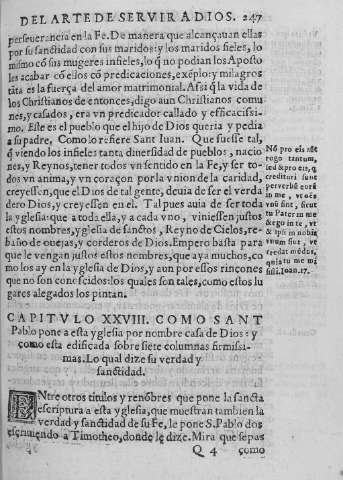 DEL ARTE DE SERVIR A DIOS. 247
perseuerancia en la Fe. De manera que alcançauan ellas
por su sanctidad con sus maridos: y los maridos fieles, lo
mismo cō sus mugeres infieles, lo q̄ no podian los Aposto
les acabar cō ellos cō predicaciones, exēplo, y milagros
tāta es la fuerça del amor matrimonial. Assi q̄ la vida de
los Christianos de entonces, digo aun Christianos comu
nes, y casados, era vn predicador callado y efficacissi-
mo. Este es el pueblo que el hijo de Dios queria y pedia
a su padre, Como lo refiere Sant Iuan. Que fuesse tal,
q̄ viendo los infieles tanta diuersidad de pueblos, nacio
nes, y Reynos, tener todos vn sentido en la Fe, y ser to-
dos vn anima, y vn coraçon por la vnion de la caridad,
creyessen, que el Dios de tal gente, deuia de ser el verda
dero Dios, y creyessen en el. Tal pues auia de ser toda
la yglesia: que a toda ella, y a cada vno, viniessen justos
estos nombres, yglesia de sanctos, Reyno de Cielos, re-
baño de ouejas, y corderos de Dios. Empero basta para
que le vengan justos estos nombres, que aya muchos, co
mo los ay en la yglesia de Dios, y aun por essos rincones
que no son conoscidos: los quales son tales, como estos lu
gares alegados los pintan.
Nō pro eis aūt
rogo tantum,
sed & pro eis, q̄
credituri sunt
per verbū eorū
in me, vt oēs
vnū sint, sicut
tu Pater in me
& ego in te, vt
& ipsi in nobis
vnum sint, vt
credat mūdus,
quia tu me mi
sisti. Ioan. 17.
CAPITVLO XXVIII. COMO SANT
Pablo pone a esta yglesia por nombre casa de Dios: y
como esta edificada sobre siete columnas firmissi-
mas. Lo qual dize su verdad y
sanctidad.
ENtre otros titulos y renōbres que pone la sancta
escriptura a esta yglesia, que muestran tambien la
verdad y sanctidad de su Fe, le pone S. Pablo dos
escriuiendo a Timotheo, donde le dize. Mira que sepas
Q 4 como